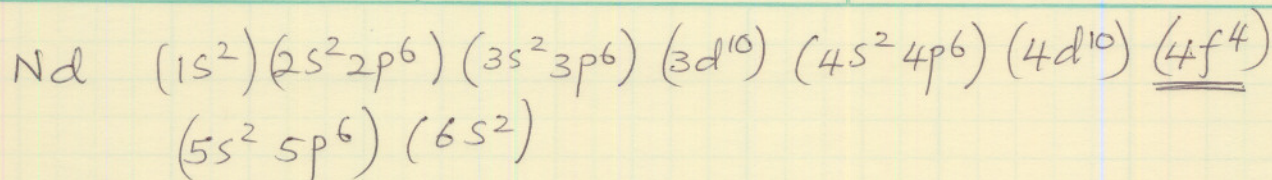 Nd (1s²) (2s² 2p⁶) (3s² 3p⁶) (3d¹⁰) (4s² 4p⁶) (4d¹⁰) (4f⁴)
(5s² 5p⁶) (6s²)